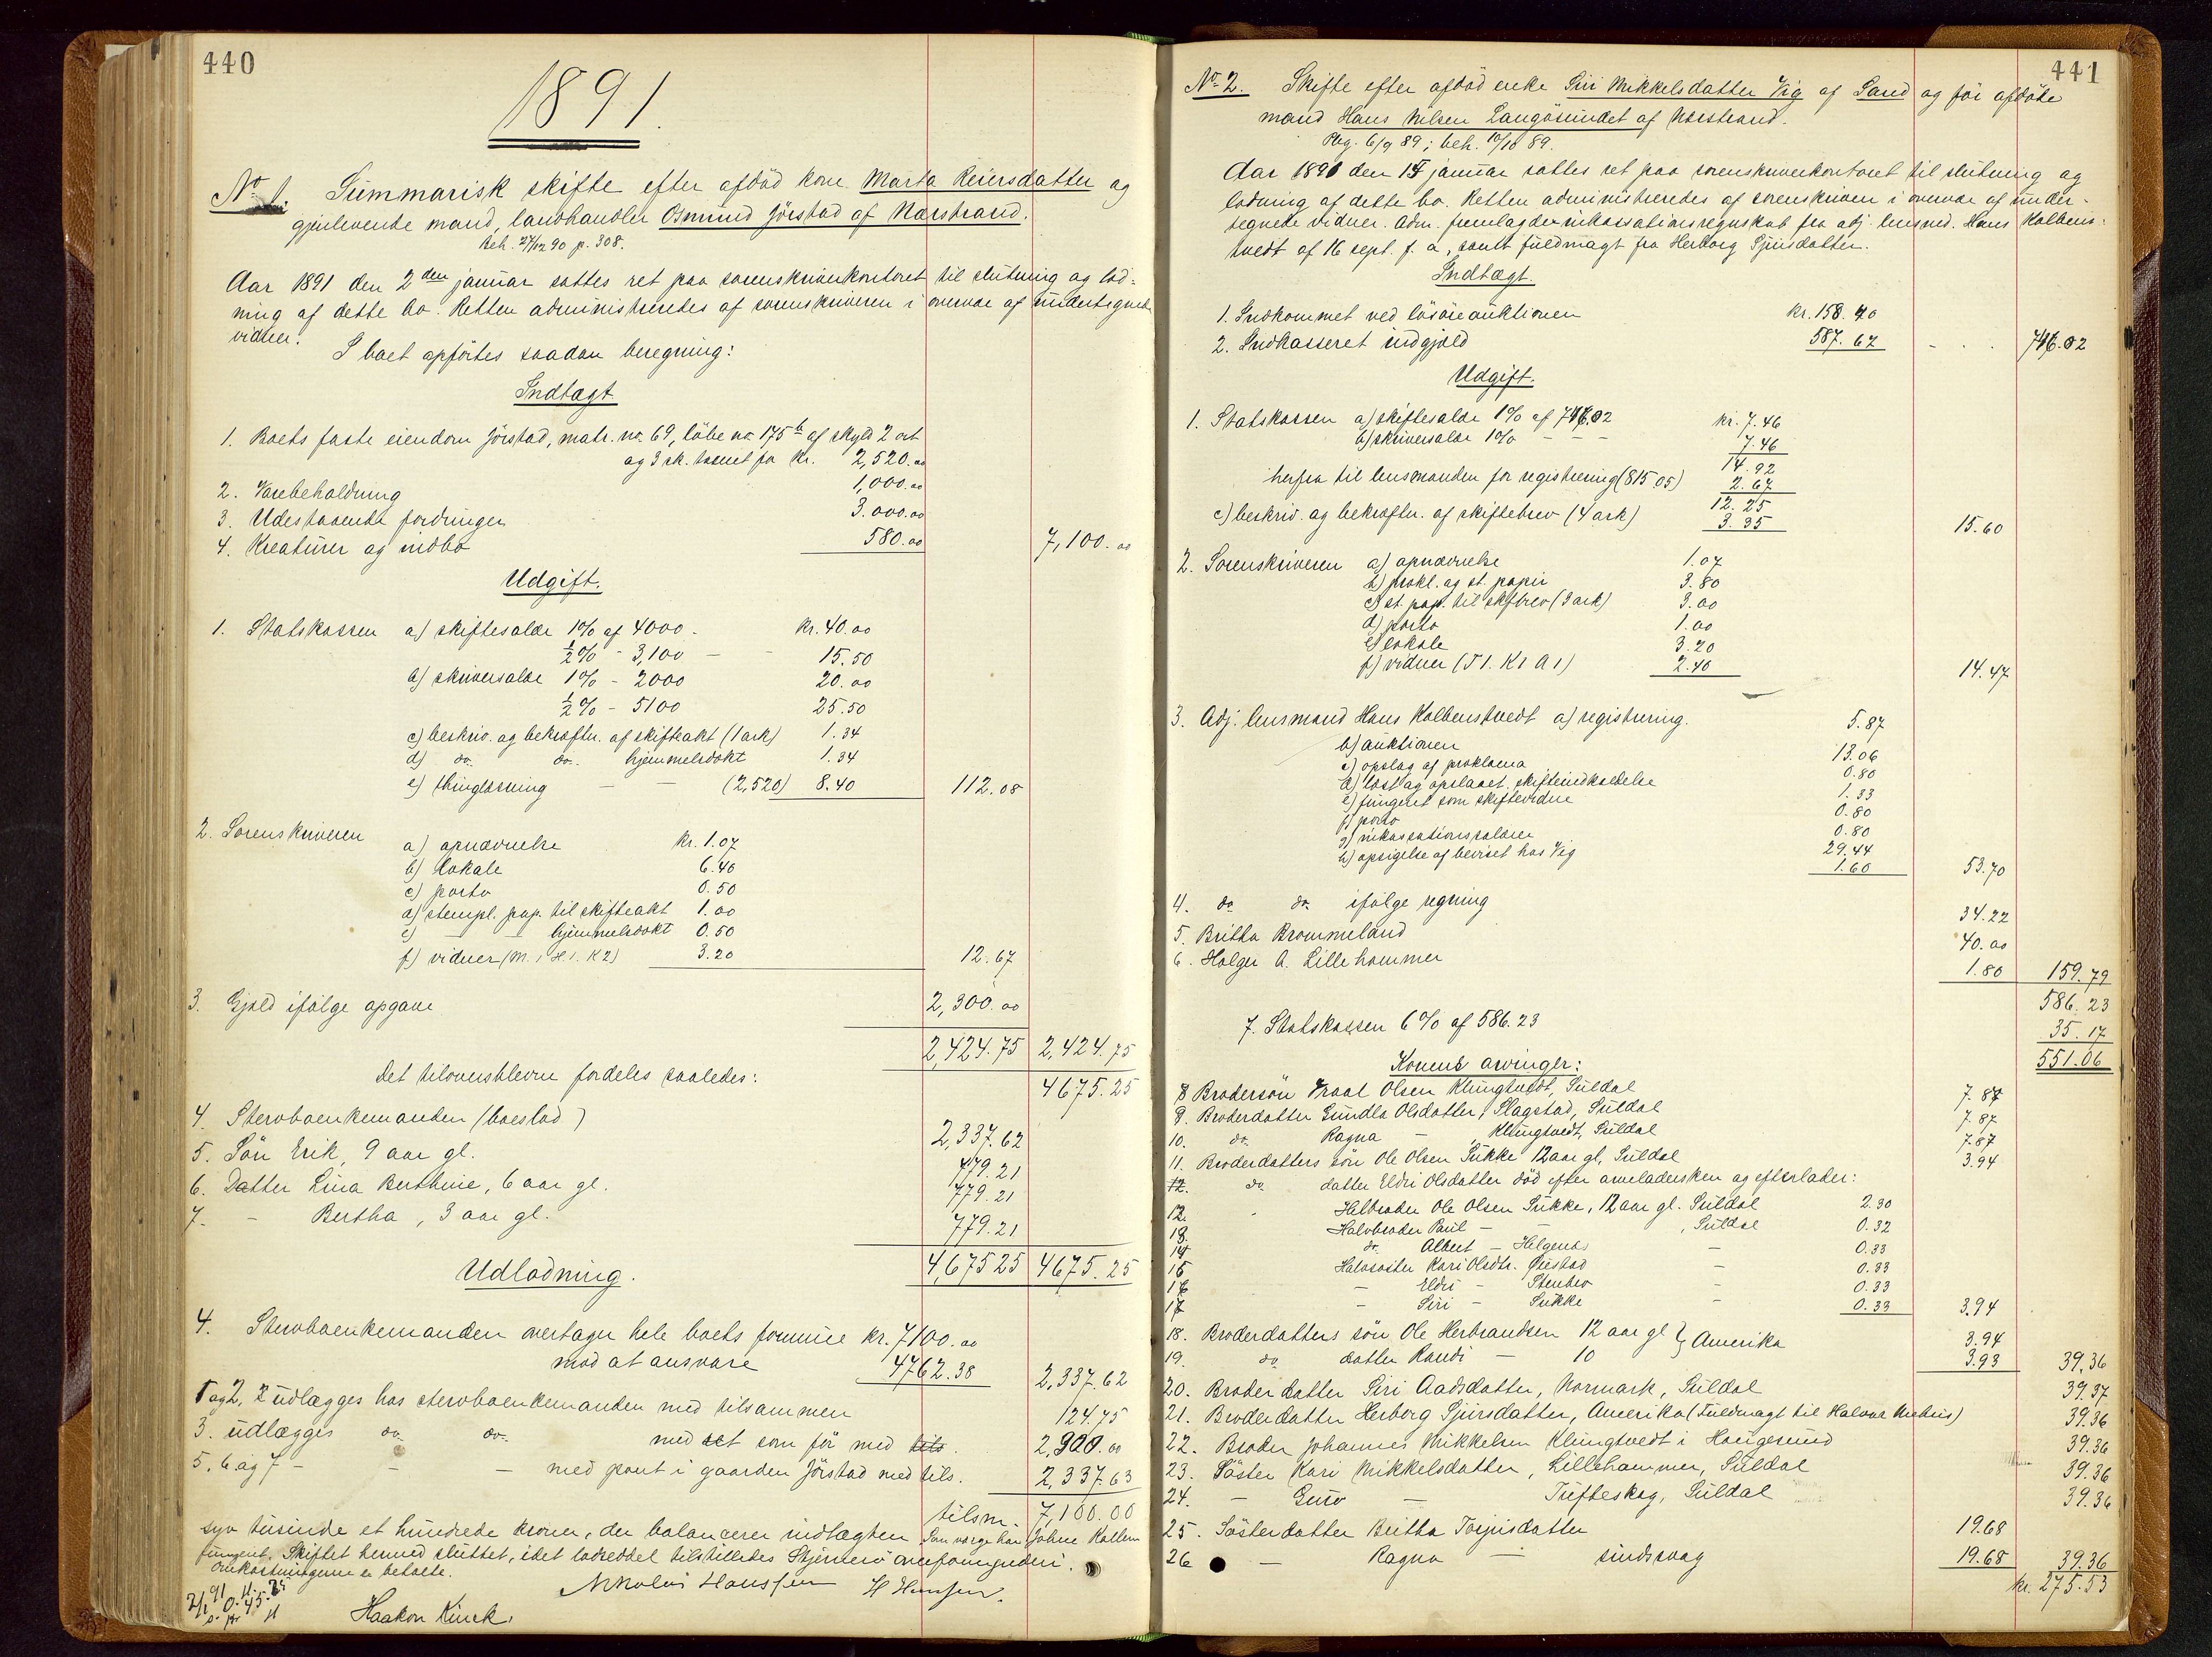 440
1891.
No 1. Summarisk skifte efter afdöd kone Marta Reiersdatter og
gjenlevende mand, landhandler Osmund Jörstad af Nærstrand.
Beh. 27/12 90 p. 308.
Aar 1891 den 2den januar sattes ret paa sorenskriverkontoret til slutning og lod-
ning af dette bo. Retten administreredes af sorenskriveren i overvær af undertegnede
vidner.
I boet opförtes saadan beregning:
Indtægt
1. Boets faste eiendom Jörstad, matr. no. 69, löbe no 175b af skyld 2 ort
og 3 sk. taxeret for kr. 2,520.00
2. Varebeholdning 1,000.00
3. Udestaaende fordringer 3.000.00
4. Kreaturer og indbo 580.00 7,100.00
Udgift.
1. Statskassen a) skiftesalær 1% af 4000 - kr. 40.00
½% - 3,100 - - 15.50
b) skriversalær 1% - 2000 20.00
½% - 5100 25.50
c) beskriv. og bekræftn. af skifteakt (1 ark) 1.34
d) do. do. hjemmelsdokt 1.34
e) thinglæsning - - (2,520) 8.40 112.08
2. Sorenskriveren a) opnævnelse kr. 1.07
b) lokale 6.40
c) porto 0.50
d) stempl. pap. til skifteakt 1.00
e) - - hjemmelsdokt 0.50
f) vidner (M. 1 H. 1. K 2) 3.20 12.67
3. Gjæld ifölge opgave 2,300.00
2,424.75 2,424.75
Det tiloversblevne fordeles saaledes: 4675.25
4. Stervboenkemanden (boeslod) 2,337.62
5. Sön Erik, 9 aar gl. 779.21
6. Datter Lina Berthine, 6 aar gl. 779.21
7. - Bertha, 3 aar gl. 779.21
4,675 25 4675.25
Udlodning.
4. Stervboenkemanden overtager hele boets formue kr. 7100.00
mod at ansvare 4762.38 2,337.62
1 og 2, udlægges hos stervboenkemanden med tilsammen 124.75
3. udlægges do do. med det som för med tils. 2,300.00
5, 6 og 7 - - - med pant i gaarden Jörstad med tils. 2,337.63
tilsm. 7,100.00
syv tusinde et hundrede kroner, der balancerer indtægten Som værge har Johne
fungeret. Skiftet hermed sluttet, idet lodseddel tilstilledes Stjernerö overformynderi.
Omkostningerne er betalte.
Nikolai Hanssen H Hansen.
Haakon Kinck.
441
No 2. Skifte efter afdöd enke Siri Mikkelsdatter Vig af Sand og för afdöde
mand Hans Nilsen Langösundet af Nærstrand.
Reg. 6/9 89; beh. 10/10 89.
Aar 1891 den 15 januar sattes ret paa sorenskriverkontoret til slutning og
lodning af dette bo. Retten administreredes af sorenskriveren i overvær af under-
tegnede vidner. Adm. fremlagde inkassationsregnskab fra adj. lensmd. Hans Kolbens-
tvedt af 16 sept. f. a., samt fuldmagt fra Herborg Sjursdatter.
Indtægt.
1. Indkommet ved lösöreauktionen kr. 158.40
2. Indkasseret indgjæld 587.62 - . . 746.02
Udgift.
1. Statskassen a) skiftesalær 1% af 746.02 kr. 7.46
b) skriversalær 1% - - - 7.46
14.92
herfra til lensmanden for registrering (815.05) 2.67
12.25
c) beskriv. og bekræftn. af skiftebrev (4 ark) 3.35 15.60
2. Sorenskriveren a) opnævnelse 1.07
b) prokl. og st. papir 3.80
c) st. pap. til skftbrev (3 ark) 3.00
d) porto 1.00
e) lokale 3.20
f) vidner (T 1. K 1 A 1) 2.40 14.47
3. Adj. lensmand Hans Kolbenstvedt a) registrering. 5.87
b) auktionen 13.06
c) opslag af proklama 0.80
d) læst og opslaaet skifteindkaldelse 1.33
e) fungeret som skiftevidne 0.80
f) porto 0.80
g) inkassationssalærer 29.44
h) opsigelse af beviset hos Vig 1.60 53.70
4. do do ifölge regning 34.22
5. Britha Brommeland 40.00
6. Holger A. Lillehammer 1.80 159.79
586.23
7. Statskassen 6% af 586.23 35.17
551.06
Konens arvinger:
8 Brodersön Vraal Olsen Klungtvedt, Suldal 7.87
9. Broderdatter Gundla Olsdatter, Slagstad, Suldal 7.87
10. do Ragna - Klungtvedt, Suldal 7.87
11. Broderdatters sön Ole Olsen Sukke 12 aar gl, Suldal 3.94
12. do datter Eldri Olsdatter död efter arveladersken og efterlader:
12. Helbroder Ole Olsen Sukke, 12 aar gl. Suldal 2.30
13. Halvbroder Paul - - , Suldal 0.32
14 do Albert - Helgenæs - 0.33
15 Halvsöster Kari Olsdtr. - 0.33
16 - Eldri - Stenbro - 0.33
17 - Siri - Sukke - 0.33 3.94
18. Broderdatters sön Ole Herbrandsen 12 aar gl } Amerika 3.94
19. do datter Randi - 10 3.93 39.36
20. Broder datter Siri Aadsdatter, Normark, Suldal 39.37
21. Broderdatter Herborg Sjursdatter, Amerika (Fuldmagt til Halvor ) 39.36
22. Broder Johannes Mikkelsen Klungtvedt i Haugesund 39.36
23. Söster Kari Mikkelsdatter, Lillehammer, Suldal 39.36
24. - Guro - Tufteskog, Suldal 39.36
25. Sösterdatter Britha Torjusdatter 19.68
26 - Ragna - sindssvag 19.68 39.36
kr. 275.53